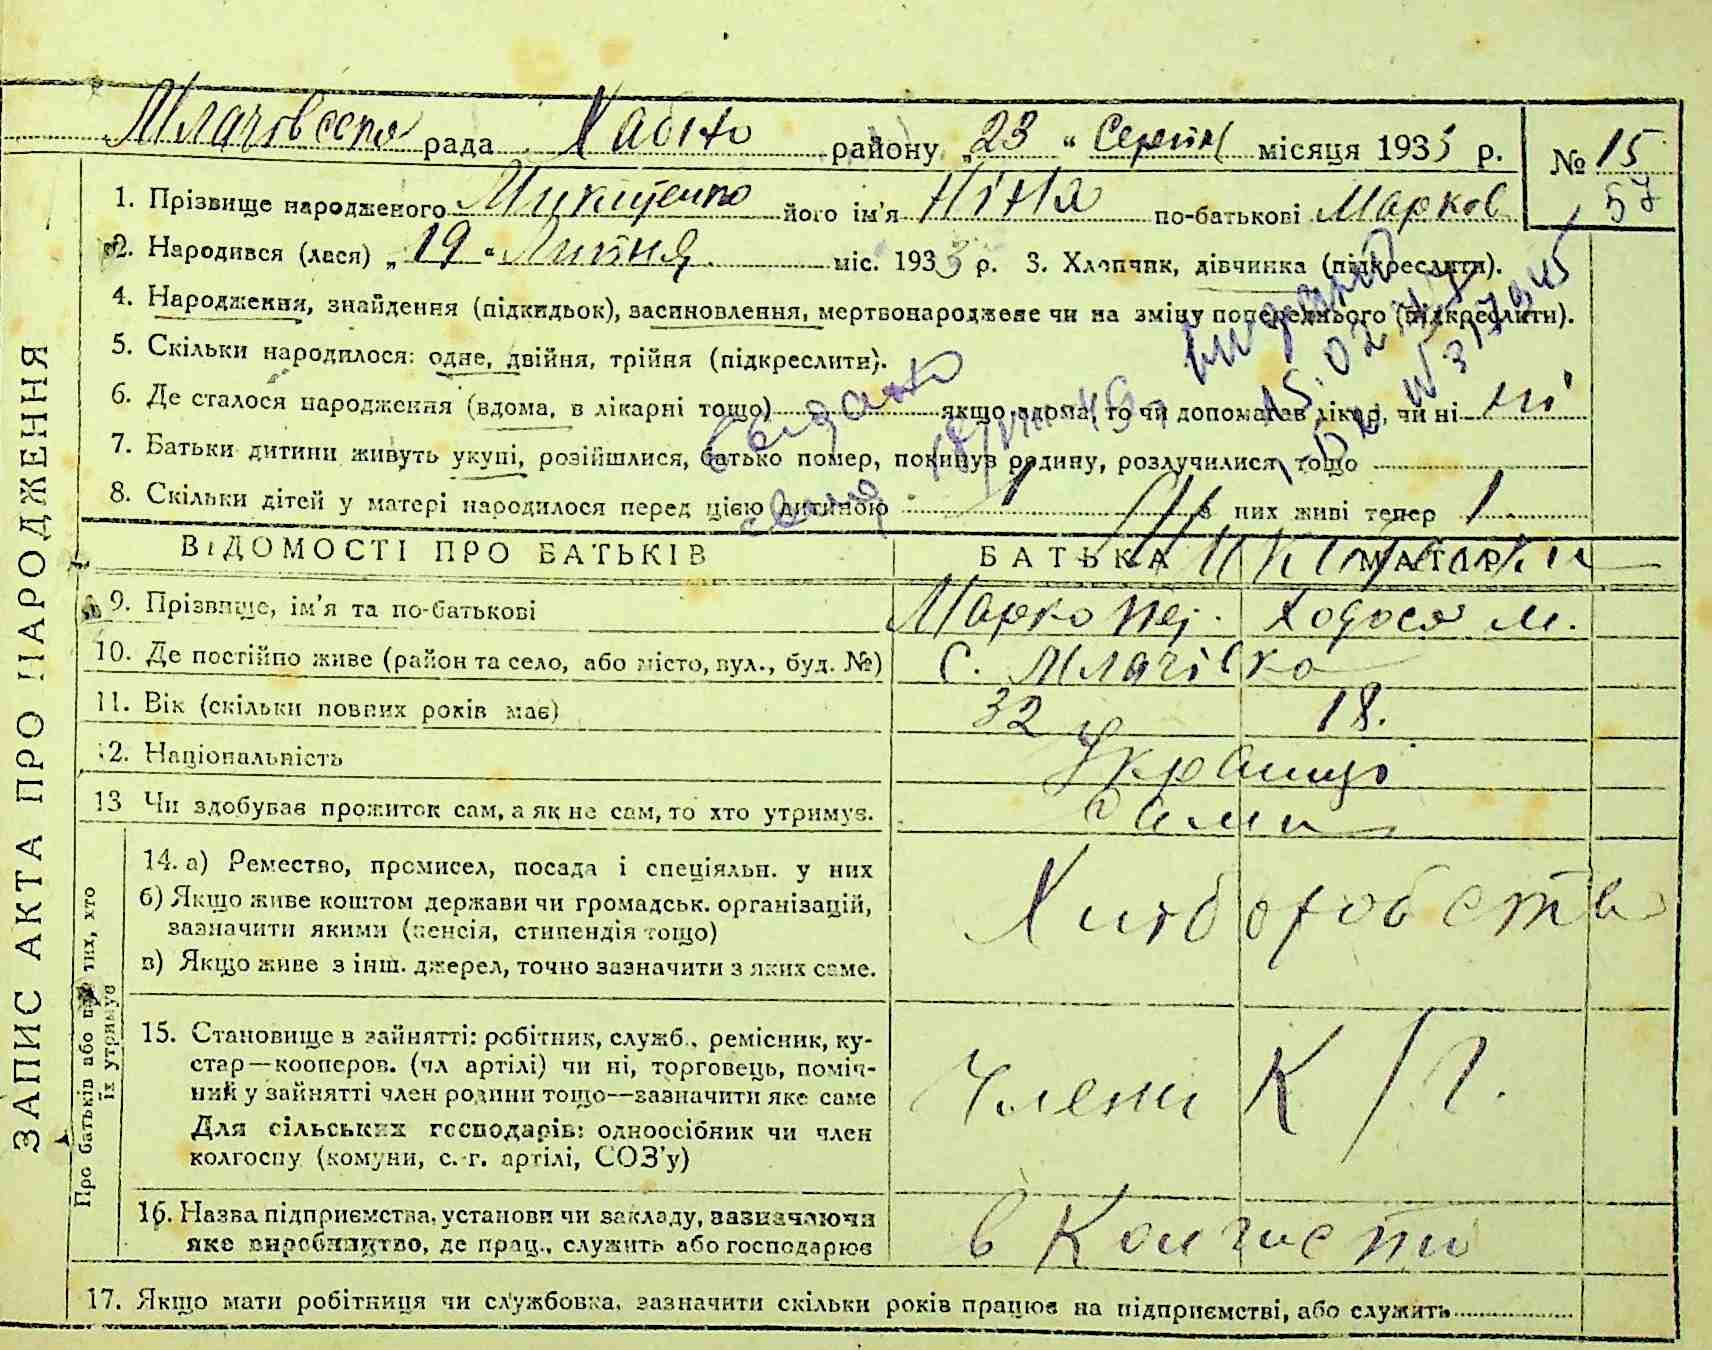 рада Хабно району „23“ Серпня місяця 1933 р. № 15
57
1. Прізвище народженого Микитенко його ім'я Ніна по-батькові Марков
2. Народився (лася) „19“ Липня міс. 1933 р. 3. Хлопчик, дівчинка (підкреслити).
4. Народження, знайдення (підкидьок), засиновлення, мертвонароджене чи на зміну попереднього (підкреслити).
5. Скільки народилося: одне, двійня, трійня (підкреслити).
6. Де сталося народження (вдома, в лікарні тощо) якщо вдома, то чи допомагав лікар, чи ні ні
7. Батьки дитини живуть укупі, розійшлися, батько помер, покинув родину, розлучилися, тощо
8. Скільки дітей у матері народилося перед цією дитиною 1 з них живі тепер 1.
ВІДОМОСТІ ПРО БАТЬКІВ БАТЬКА МАТЕРІ
9. Прізвище, ім'я та по-батькові Марко Ходося М.
10. Де постійно живе (район та село, або місто, вул., буд. №) С. Млачівка
11. Вік (скільки повних років має) 32 18.
12. Національність Українці
13 Чи здобував прожиток сам, а як не сам, то хто утримує. Сами
14. а) Ремество, промисел, посада і спеціяльн. у них
б) Якщо живе коштом держави чи громадськ. організацій,
зазначити якими (пенсія, стипендія тощо)
в) Якщо живе з інш. джерел, точно зазначити з яких саме.
Хліборобство
15. Становище в зайнятті: робітник, служб., ремісник, ку-
стар—кооперов. (чл артілі) чи ні, торговець, поміч-
ний у зайнятті член родини тощо—зазначити яке саме
Для сільських господарів: одноосібник чи член
колгоспу (комуни, с.-г. артілі, СОЗ'у)
Члени К/Г.
16. Назва підприємства, установи чи закладу, зазначаючи
яке виробництво, де прац., служить або господарює
в Колгоспі
17. Якщо мати робітниця чи службовка, зазначити скільки років працює на підприємстві, або служить
ЗАПИС АКТА ПРО НАРОДЖЕННЯ
Про батьків або про тих, хто
їх утримує